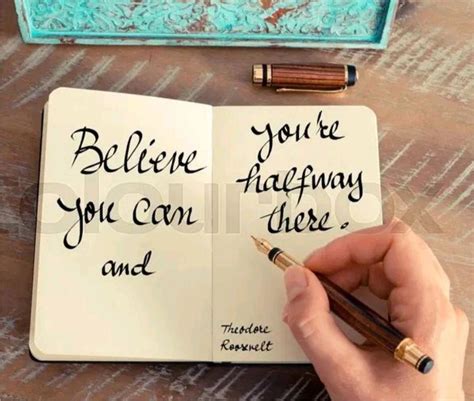 Believe
you can
and
you're
halfway
there.
Theodore
Roosevelt
colourbox